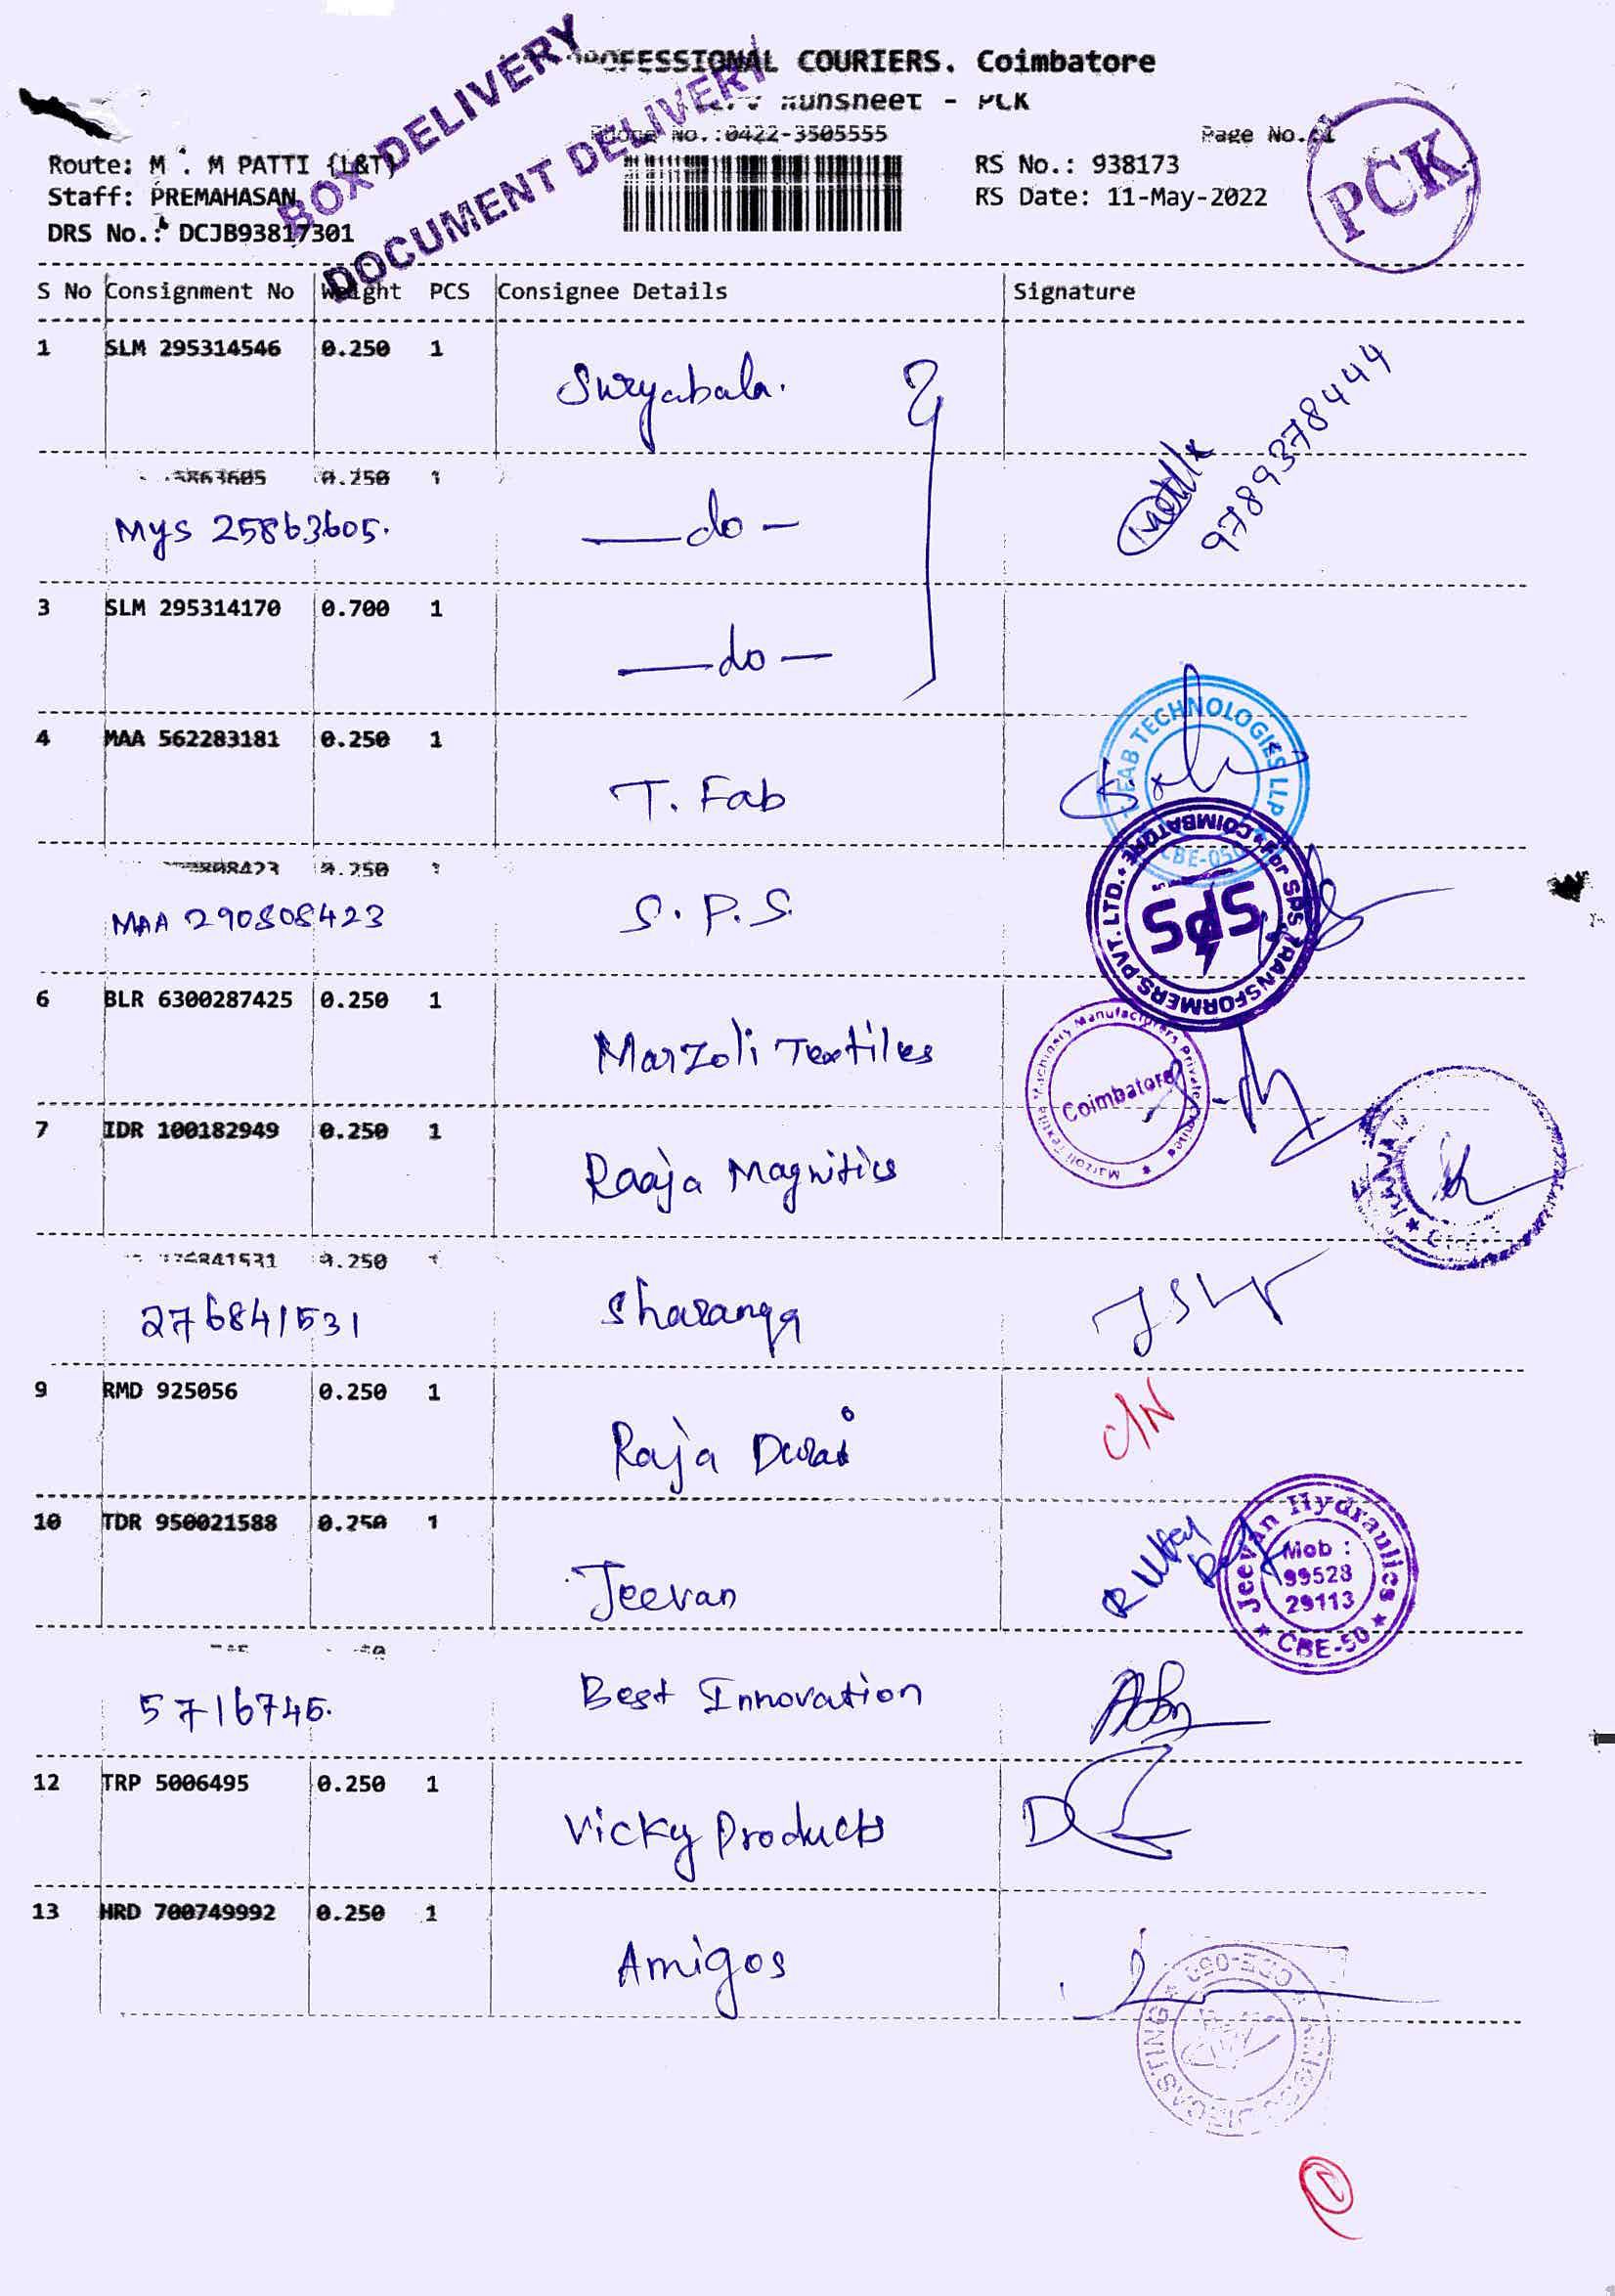 BOX DELIVERY
DOCUMENT DELIVERY
PROFESSIONAL COURIERS. Coimbatore
Runsheet - PCK
Phone No.:0422-3505555
Page No.:1
PCK
Route: M . M PATTI (L&T)
Staff: PREMAHASAN
DRS No.: DCJB93817301
RS No.: 938173
RS Date: 11-May-2022
S No Consignment No Weight PCS Consignee Details Signature
1 SLM 295314546 0.250 1 Suryabala.
9789378444
863605 0.250 1
Mys 25863605. —do—
3 SLM 295314170 0.700 1 —do—
4 MAA 562283181 0.250 1 T. Fab
FAB TECHNOLOGIES LLP CBE-050
808423 0.250 1
MAA 290808423 S.P.S.
For SPS TRANSFORMERS PVT. LTD. COIMBATORE
SPS
6 BLR 6300287425 0.250 1 Marzoli Textiles
Marzoli Textile Machinery Manufacturers Private Limited
Coimbatore
7 IDR 100182949 0.250 1 Raaja Magnitics
276841531 0.250 1
276841531 Sharanga
9 RMD 925056 0.250 1 Raja Durai C/N
10 TDR 950021588 0.250 1 Jeevan
Jeevan Hydraulics
Mob :
99528
29113
CBE-50
5716745. Best Innovation
12 TRP 5006495 0.250 1 Vicky Products
13 HRD 700749992 0.250 1 Amigos
CBE-050